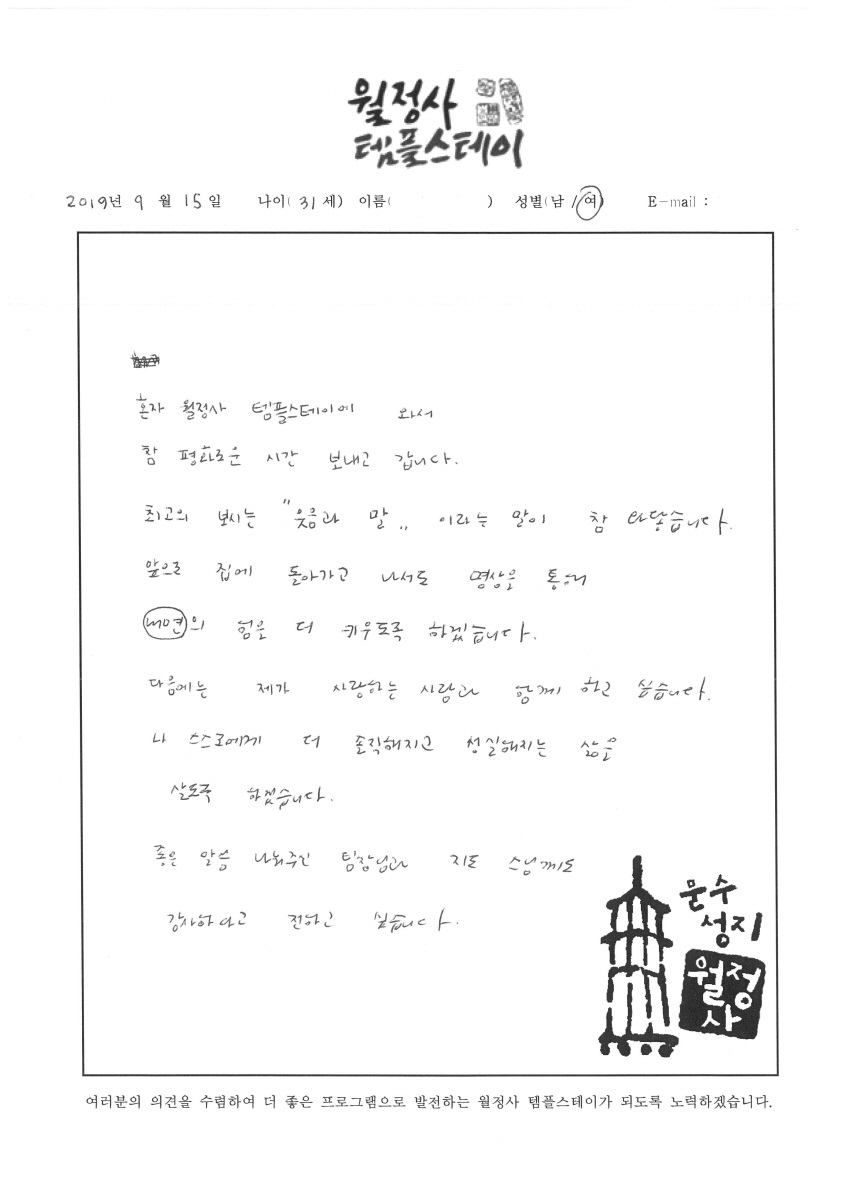 월정사
템플스테이
2019년 9월 15일 나이( 31 세) 이름( ) 성별(남 / 여) E-mail :
혼자 월정사 템플스테이에 와서
참 평화로운 시간 보내고 갑니다.
최고의 보시는 "웃음과 말" 이라는 말이 참 와닿습니다.
앞으로 집에 돌아가고 나서도 명상을 통해
내면의 힘을 더 키우도록 하겠습니다.
다음에는 제가 사랑하는 사람과 함께 하고 싶습니다.
나 스스로에게 더 솔직해지고 성실해지는 삶을
살도록 하겠습니다.
좋은 말씀 나눠주신 팀장님과 지도 스님께도
감사하다고 전하고 싶습니다.
문수
성지
월정
사
여러분의 의견을 수렴하여 더 좋은 프로그램으로 발전하는 월정사 템플스테이가 되도록 노력하겠습니다.